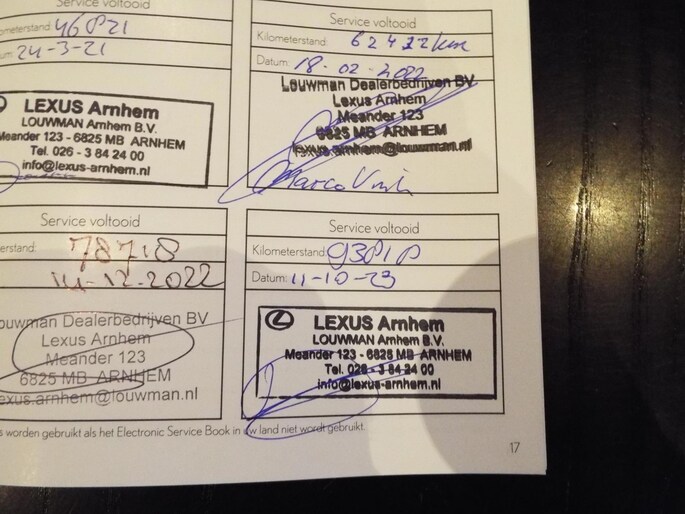 Service voltooid
ometerstand: 46821
um: 24-3-21
LEXUS Arnhem
LOUWMAN Arnhem B.V.
Meander 123 - 6825 MB ARNHEM
Tel. 026 - 3 84 24 00
info@lexus-arnhem.nl
Service voltooid
Kilometerstand: 62422km
Datum: 18-02-2022
Louwman Dealerbedrijven BV
Lexus Arnhem
Meander 123
6825 MB ARNHEM
lexus.arnhem@louwman.nl
Marco
Service voltooid
erstand: 78718
14-12-2022
ouwman Dealerbedrijven BV
Lexus Arnhem
Meander 123
6825 MB ARNHEM
exus.arnhem@louwman.nl
Service voltooid
Kilometerstand: 93818
Datum: 11-10-23
LEXUS Arnhem
LOUWMAN Arnhem B.V.
Meander 123 - 6825 MB ARNHEM
Tel. 026 - 3 84 24 00
info@lexus-arnhem.nl
s worden gebruikt als het Electronic Service Book in uw land niet wordt gebruikt.
17